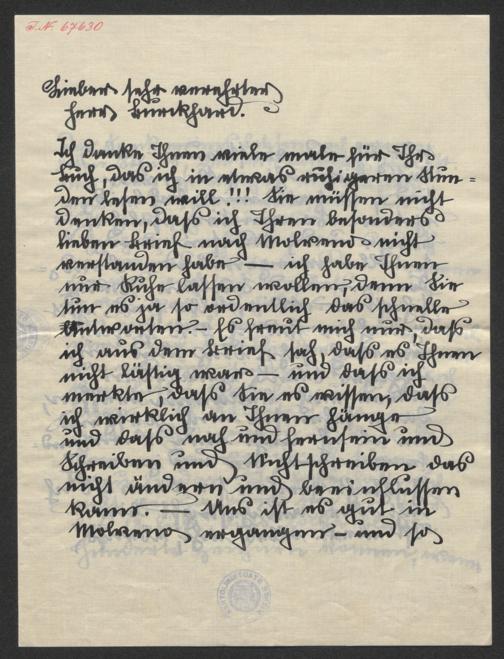 I.N. 67630
Lieber sehr verehrter
Herr Burckhard.
Ich danke Ihnen viele male für Ihr
Buch, das ich in etwas ruhigeren Stun=
den lesen will!!! Sie müssen nicht
denken, dass ich Ihren besonders
lieben Brief nach Molveno nicht
verstanden habe — ich habe Ihnen
nur Ruhe lassen wollen, denn Sie
tun es ja so ordentlich das schnelle
Antworten. – Es freut mich nur, dass
ich aus dem Brief sah, dass es Ihnen
nicht lästig war — und dass ich
merkte, dass Sie es wissen, dass
ich wirklich an Ihnen hänge
und dass nah und fernsein und
Schreiben und Nichtschreiben das
nicht ändern und beeinflussen
kann. — Uns ist es gut in
Molveno ergangen – und so